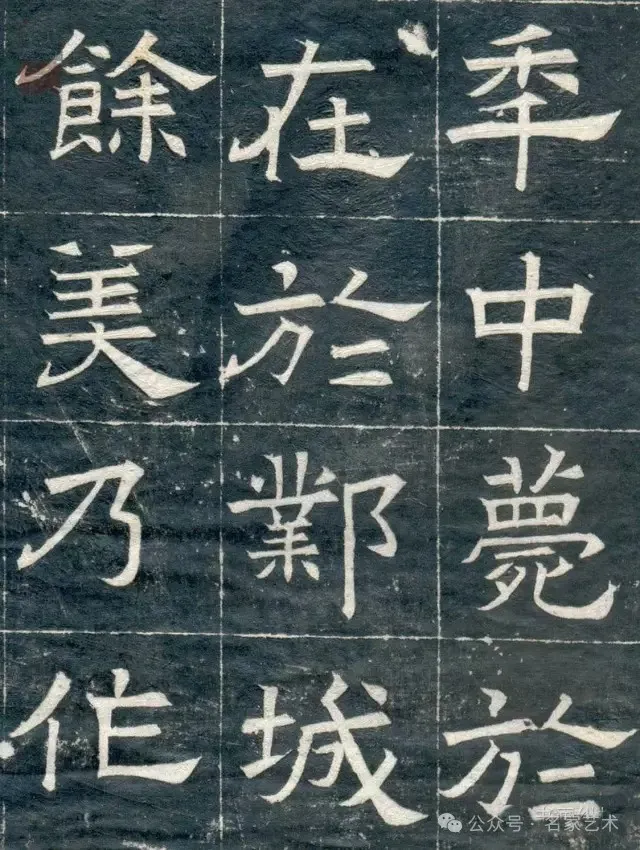 秊中薨於
在於鄴城
餘美乃作
公众号 · 名家艺术